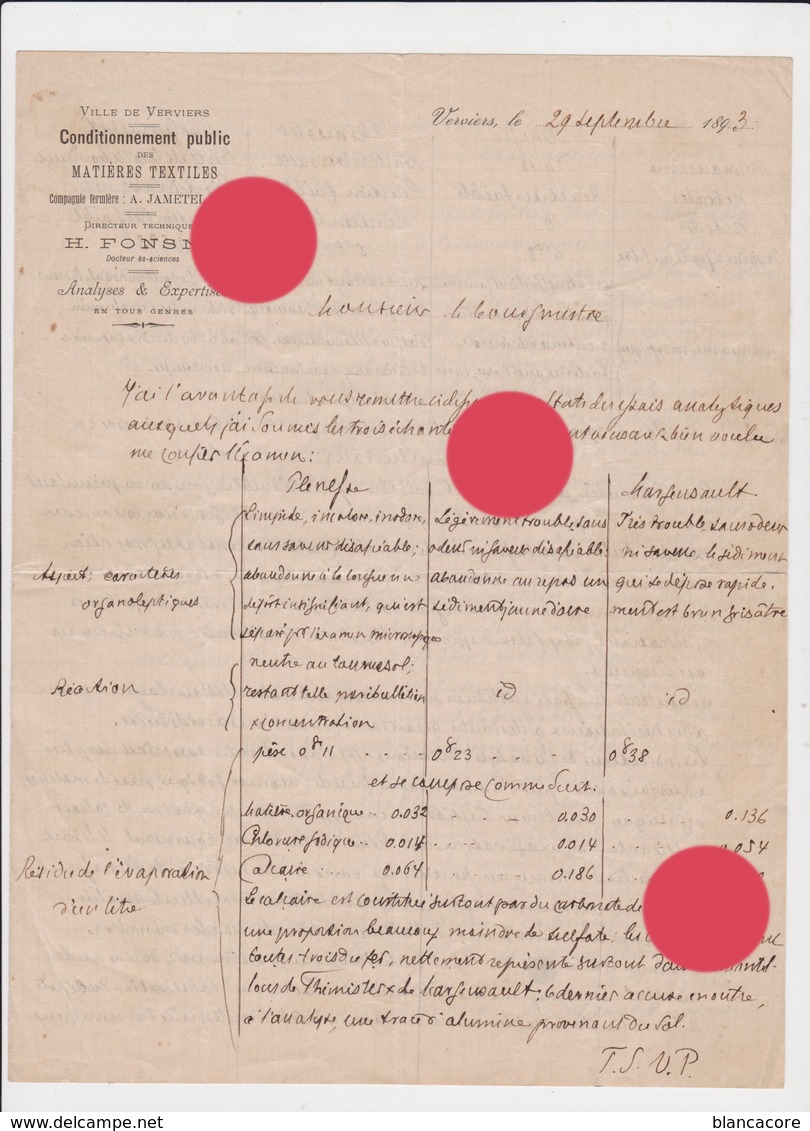 VILLE DE VERVIERS
Conditionnement public
DES
MATIÈRES TEXTILES
Compagnie fermière : A. JAMETEL
DIRECTEUR TECHNIQUE
H. FONSN
Docteur ès-sciences
Analyses & Expertise
EN TOUS GENRES
Verviers, le 29 septembre 1893
Monsieur le bourgmestre
J'ai l'avantage de vous remettre ci des essais analytiques
auxquels j'ai soumis les trois échant bien voulu
me confier l'examen :
Plenesse
Hargensault.
Aspect; caractères
organoleptiques
limpide, incolore, inodore,
sans saveur désagréable;
abandonne à la longue un
dépôt insignifiant, qui est
séparé pr l'examen microscopique
Légèrement trouble, sans
odeur ni saveur désagréable;
abandonne au repos un
sédiment jaune d'ocre
Très trouble sans odeur
ni saveur, le sédiment
qui se dépose rapide-
ment est brun grisâtre
Réaction
neutre au tournesol;
restant telle par ébullition
& concentration
id
id
Résidu de l'évaporation
d'un litre
pèse 0gr 11 . . . . 0g 23 . . . 0g 38
et se compose comme suit.
Matière organique .. 0.032 . . . 0.030 . . . 0.136
Chlorure sodique .. 0.014 . . . 0.014 . . . 0.054
Calcaire : . . 0.064 . . . 0.186
le calcaire est constitué surtout par du carbonate de
une proportion beaucoup moindre de sulfate; les
toutes trois du fer, nettement représenté surtout dans
lons de Thimister & de Hargensault; ce dernier accuse en outre,
à l'analyse, une trace d'alumine provenant du sol.
T. S. V. P.
blancacore